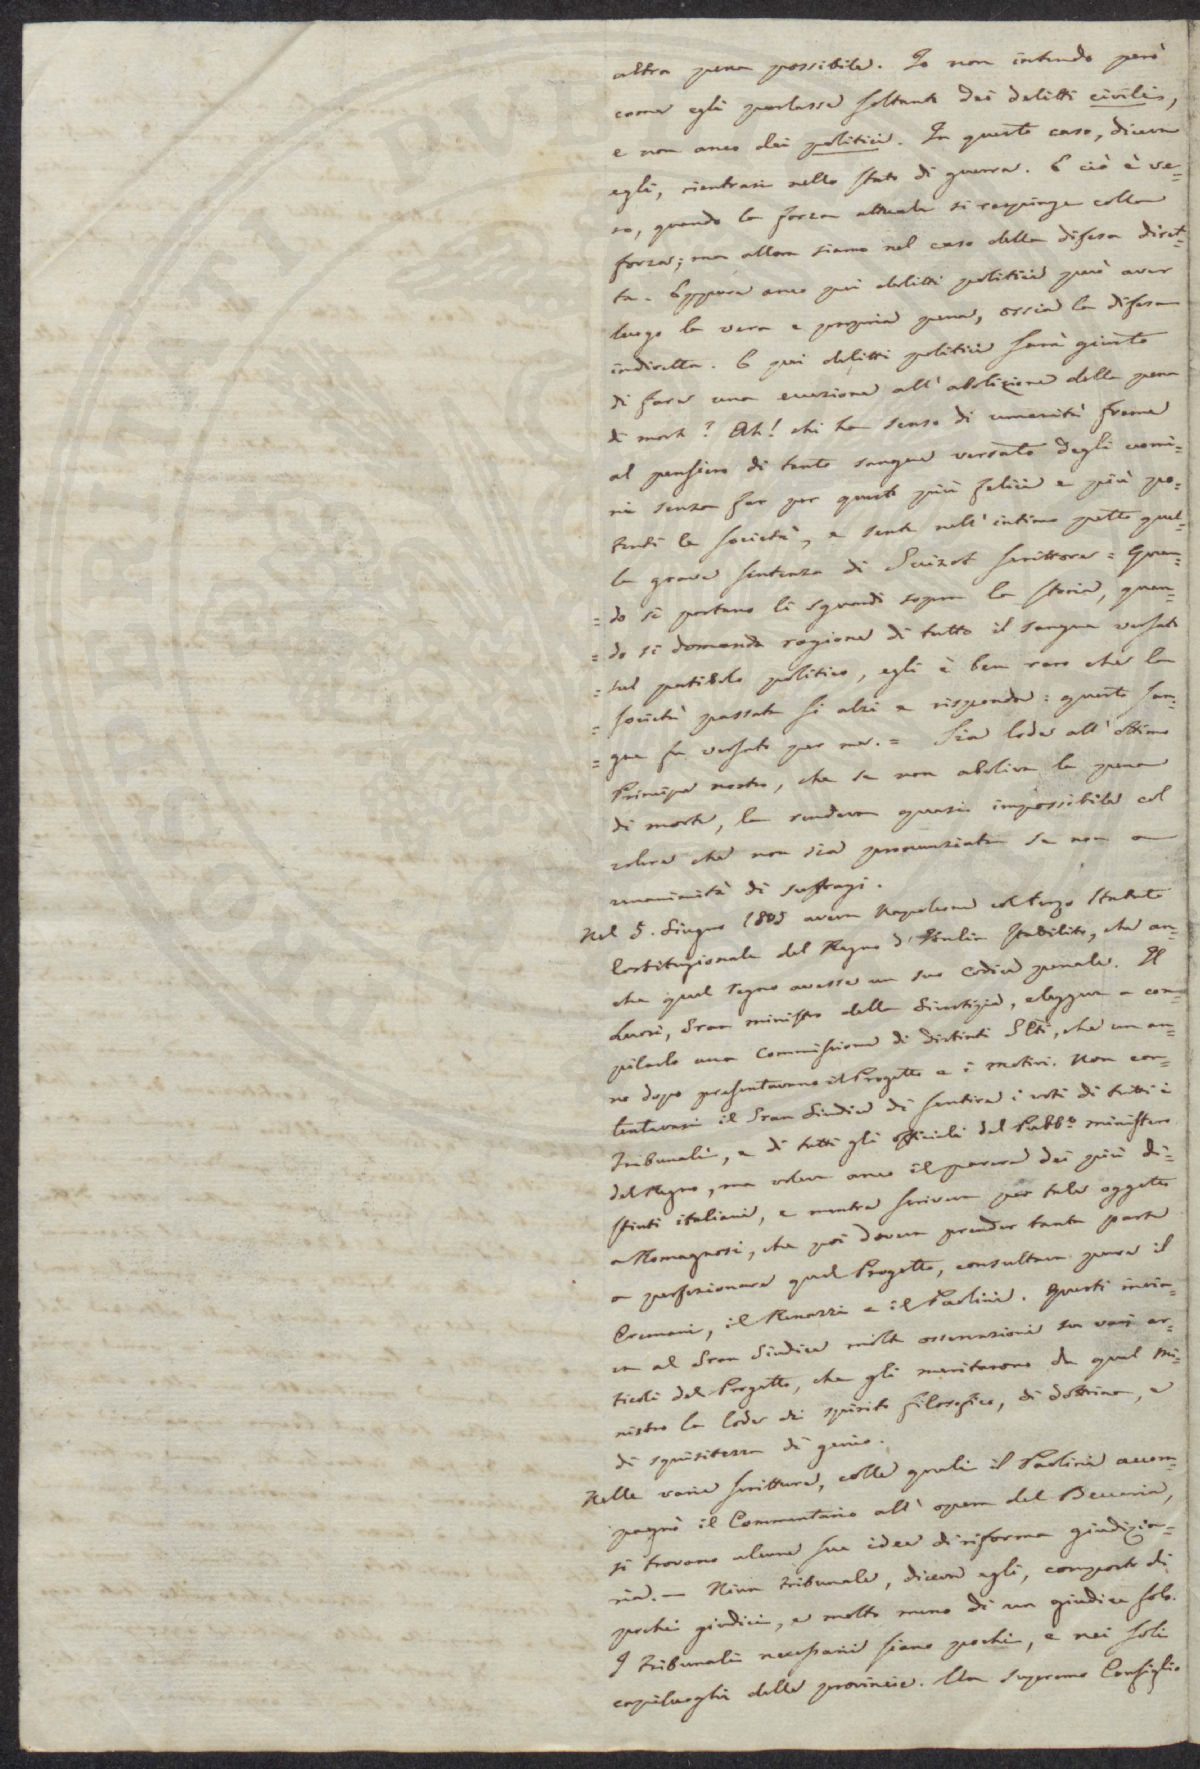 altra pena possibile. Io non intendo però
come egli parlasse soltanto dei delitti civili,
e non anco dei politici. In questo caso, diceva
egli, rientrasi nello stato di guerra. E ciò è ve=
ro, quando la forza attuale si respinge colla
forza; ma allora siamo nel caso della difesa diret=
ta. Eppure anco pei delitti politici può aver
luogo la vera e propria pena, ossia la difesa
indiretta. E pei delitti politici sarà giusto
di fare una eccezione all' abolizione della pena
di morte? Ah! chi ha senso di umanità freme
al pensiero di tanto sangue versato degli uomi=
ni senza far per questo più felici e più po=
tenti le società, e sente nell' intimo petto quel=
la grave sentenza di Guizot scrittore = Quan=
= do si portano li sguardi sopra la storia, quan=
= do si domanda ragione di tutto il sangue versato
= sul patibolo politico, egli è ben raro che la
= società passata si alzi e risponda: questo san=
= gue fu versato per me. = Sia lode all' ottimo
Principe nostro, che se non aboliva la pena
di morte, la rendeva quasi impossibile col
volere che non sia pronunziata se non a
unanimità di suffragi.
Nel 5. Giugno 1805 aveva Napoleone col terzo Statuto
Costituzionale del Regno d' Italia stabilito, che an=
che quel regno avesse un suo codice penale. Il
Luosi, Gran ministro della Giustizia, eleggeva a com=
pilarlo una Commissione di distinti Glti, che un an=
no dopo presentavano il Progetto e i motivi. Non con=
tentavasi il Gran Giudice di sentire i voti di tutti i
Tribunali, e di tutti gli officiali del Pubb.o ministero
del Regno, ma voleva anco il parere dei più di=
stinti italiani, e mentre scriveva per tale oggetto
a Romagnosi, che poi doveva prender tanta parte
a perfezionare quel Progetto, consultava pure il
Cremani, il Renazzi e il Paolini. Questi invia=
va al Gran Giudice molte osservazioni su varj ar=
ticoli del Progetto, che gli meritarono da quel Mi=
nistro la lode di spirito filosofico, di dottrina, e
di squisitezza di genio.
Nelle varie scritture, colle quali il Paolini accom=
pagnò il Commentario all' opera del Beccaria,
si trovano alcune sue idee di riforma giudizia=
ria. — Niun tribunale, diceva egli, composto di
pochi giudici, e molto meno di un giudice solo.
I tribunali necessarii siano pochi, e nei soli
capiluoghi delle provincie. Un supremo Consiglio